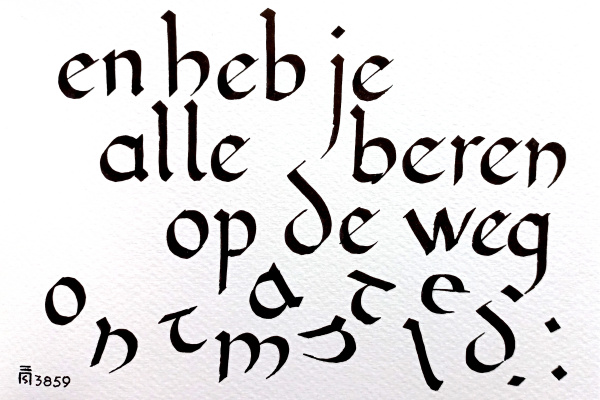 en heb je
alle beren
op de weg
ontmanteld...
3859